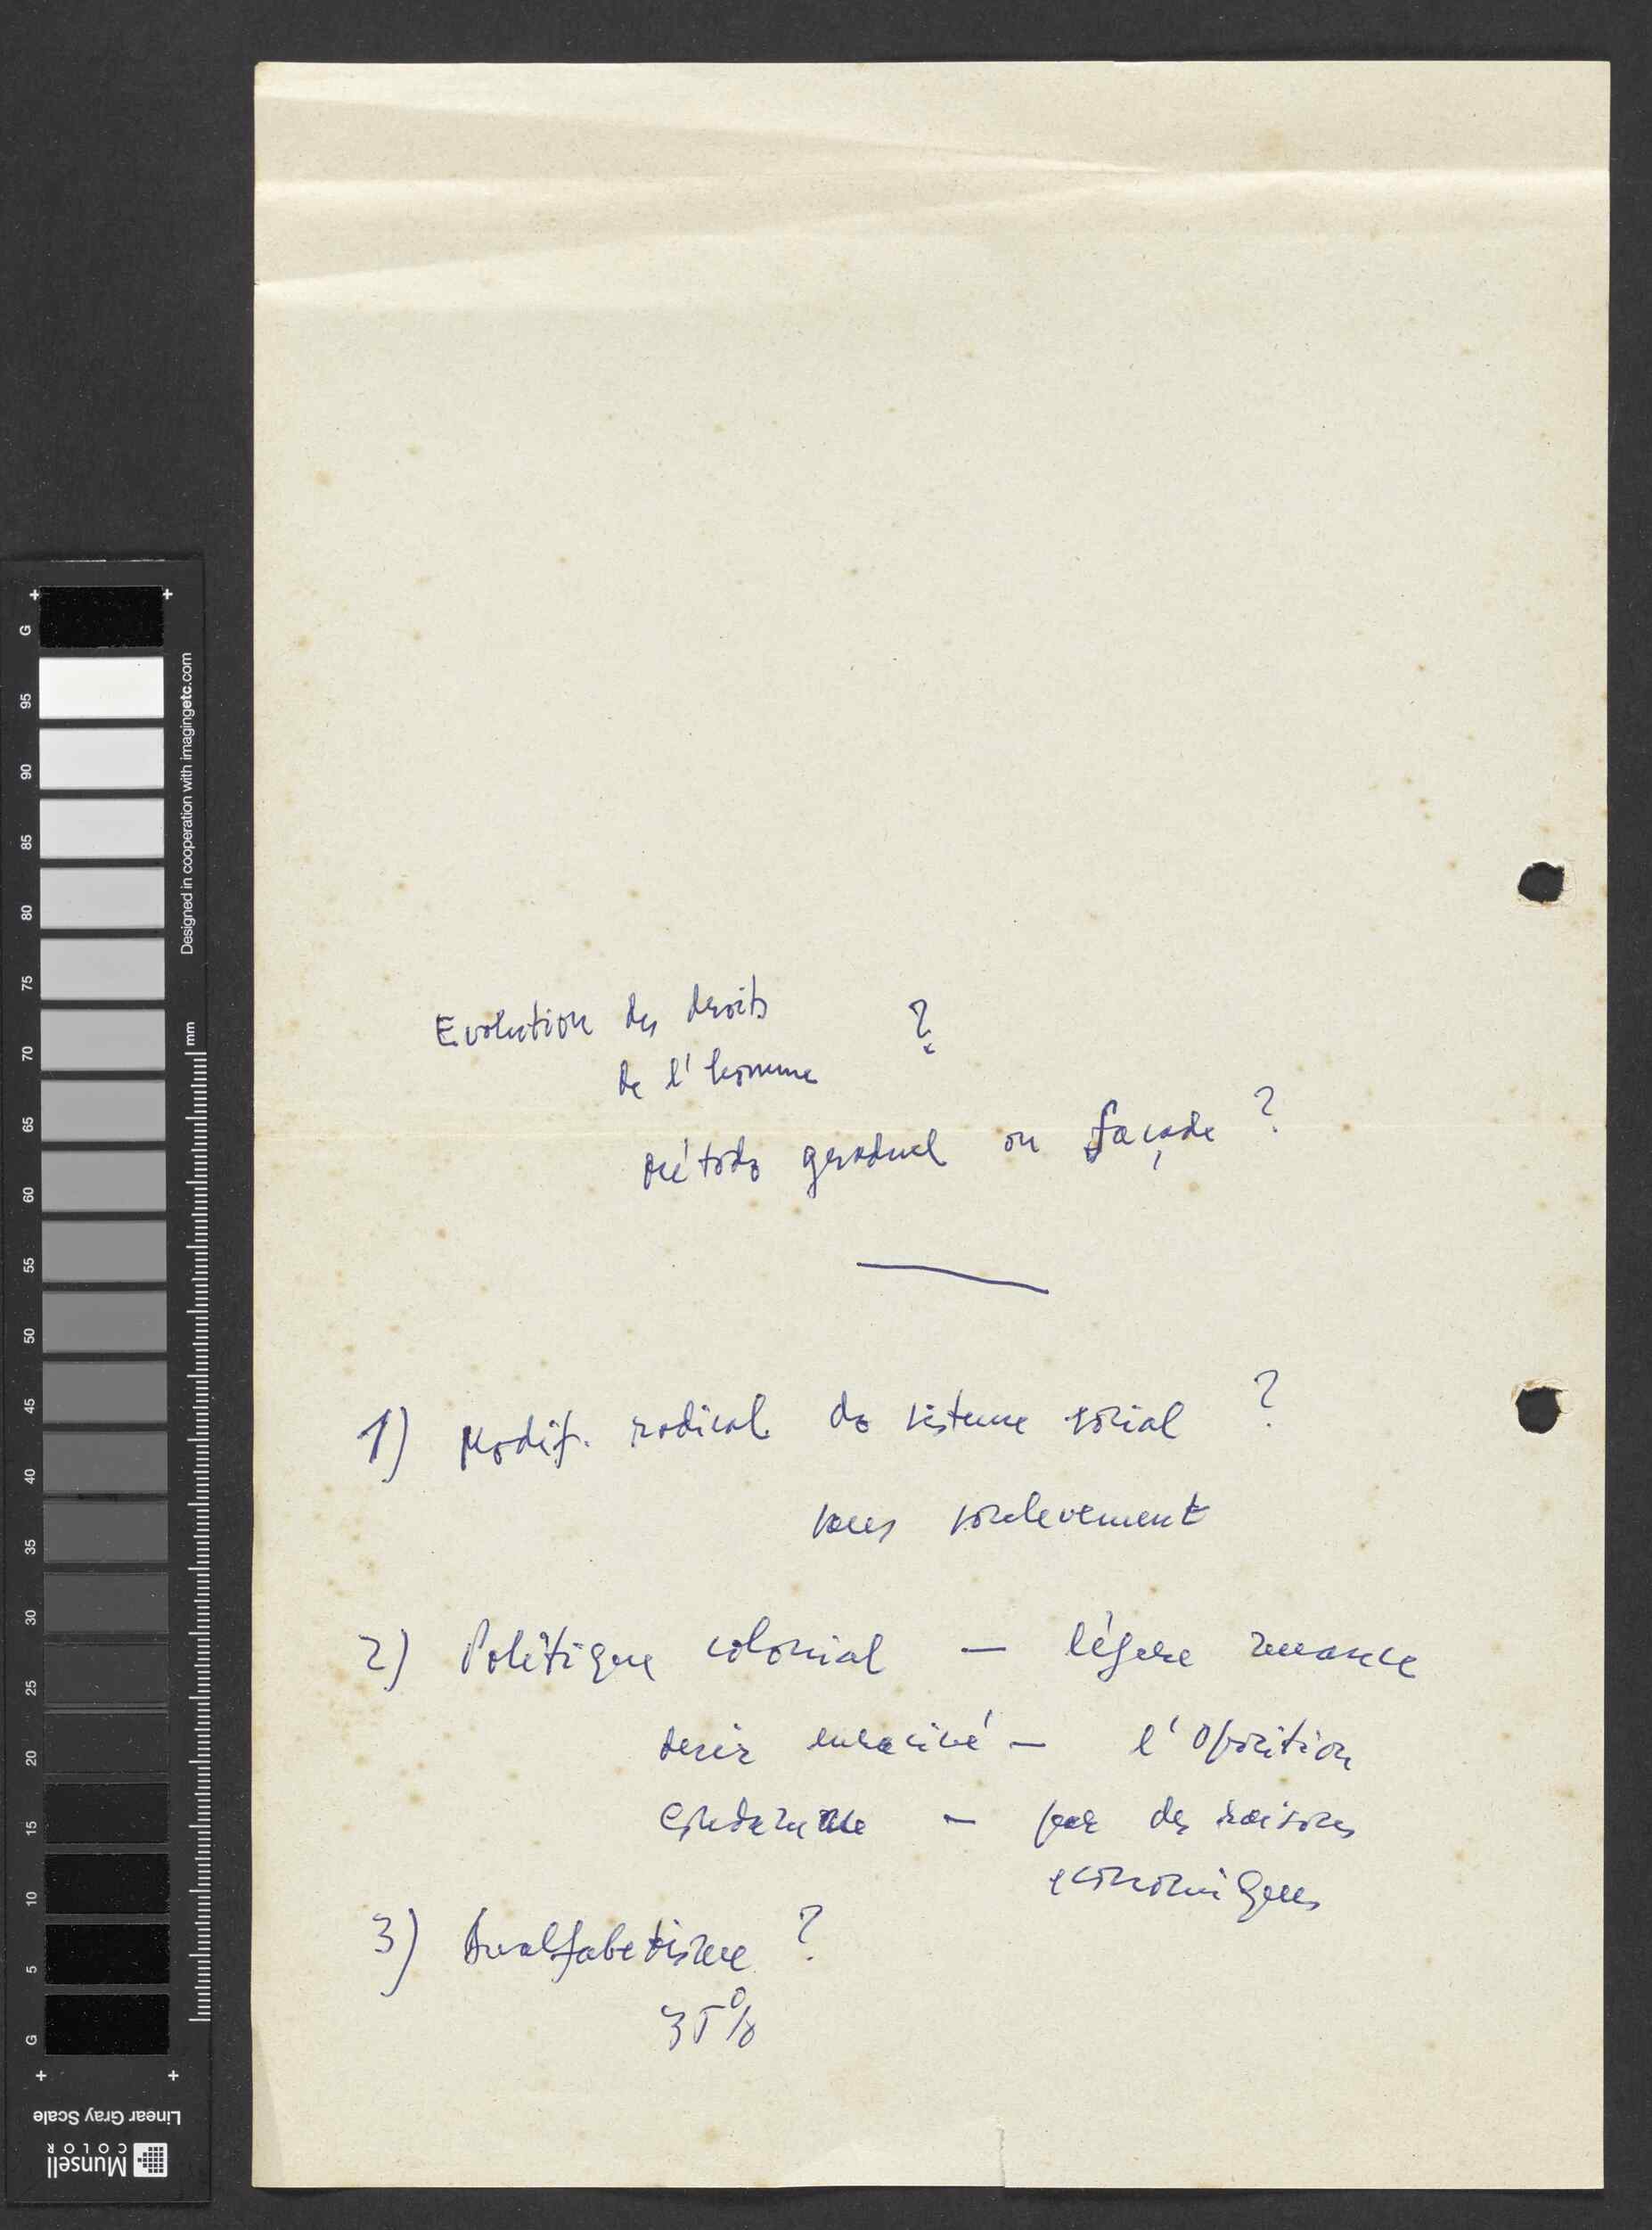 Evolution des droits ?
de l'homme
método graduel ou façade ?
1) Modif. radical do sisteme social ?
sans soulevement
2) Politique colonial — légere nuance
desir enraciné — l'Oposition
— par des raisons
economiques
3) Analfabetisme ?
35%
G 95 90 85 80 75 70 65 60 55 50 45 40 35 30 25 20 15 10 5 G
Designed in cooperation with imagingetc.com
mm
Linear Gray Scale
Munsell
COLOR